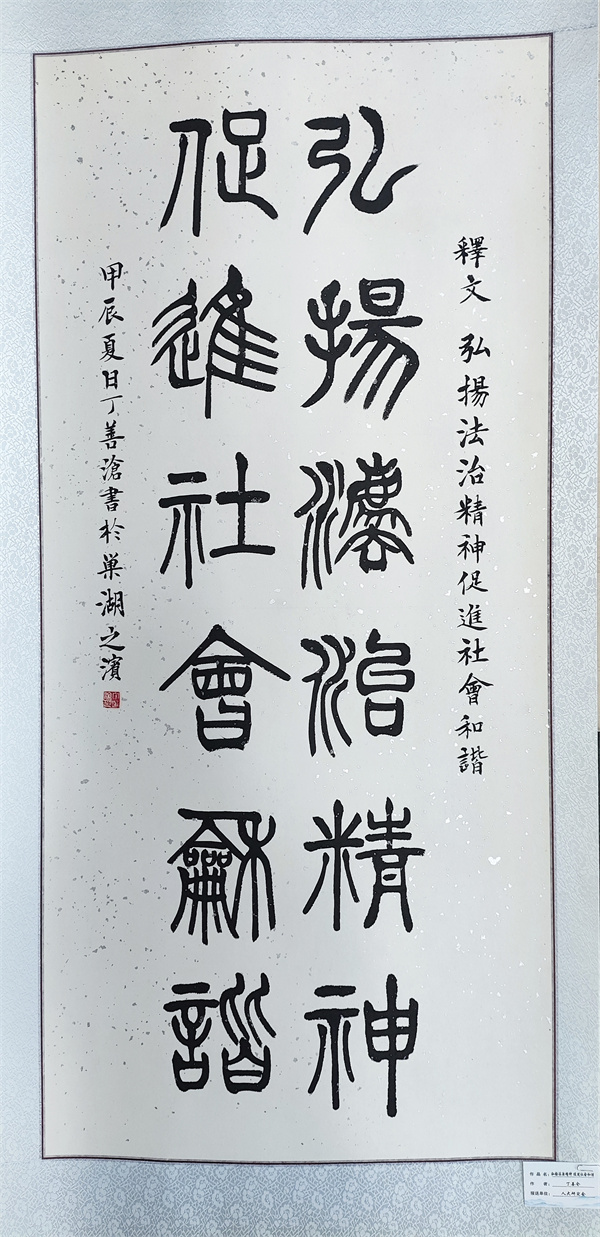 釋文 弘揚法治精神促進社會和諧
弘揚灋治精神
促進社會龢諧
甲辰夏日丁善滄書於巢湖之濱
作品名：
作者：